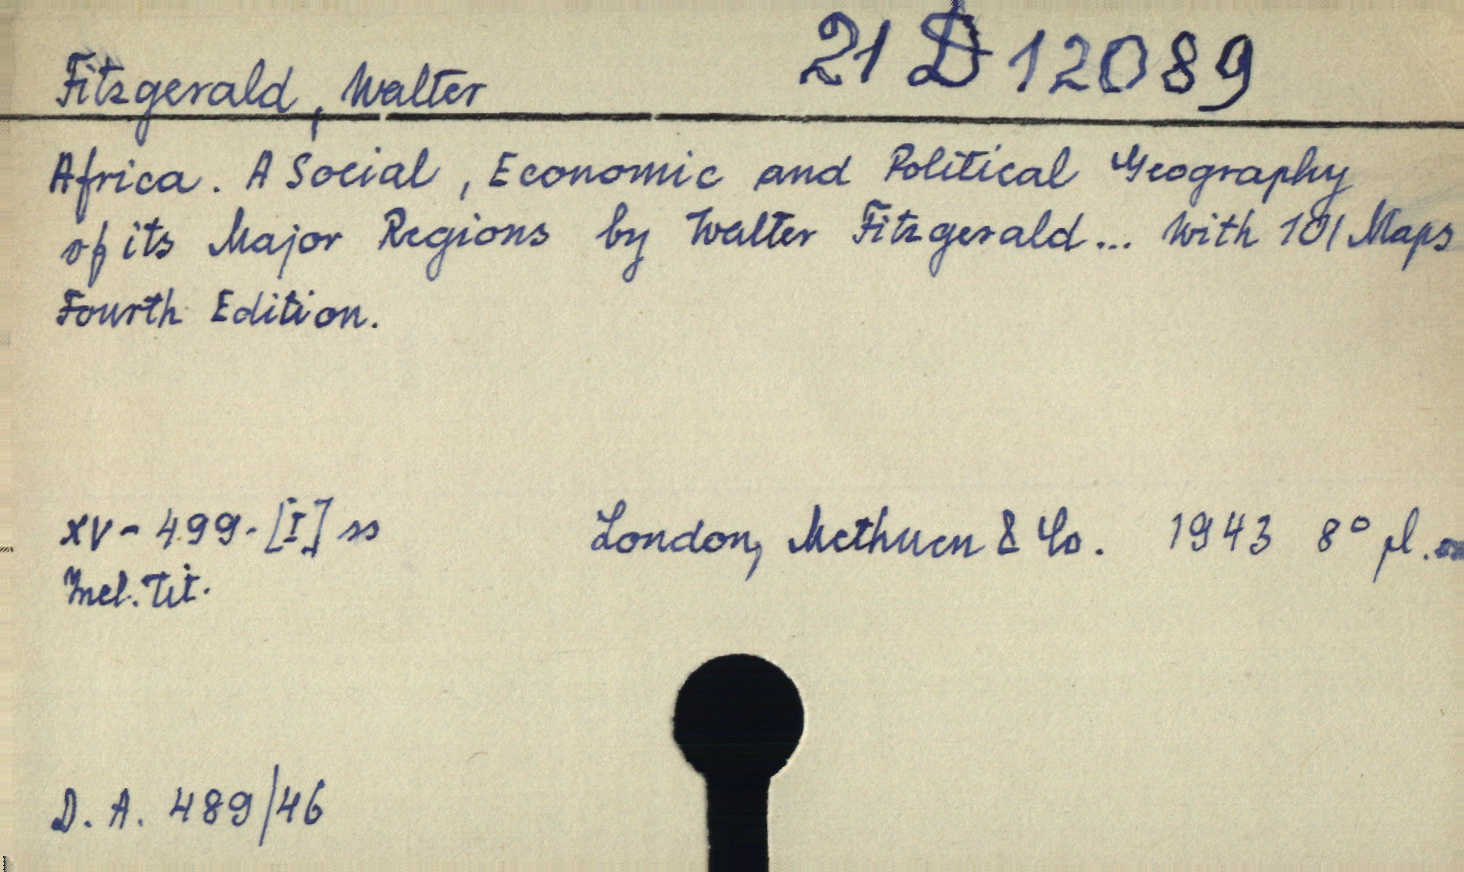 21 D 12089
Fitzgerald, Walter
Africa. A Social, Economic and Political Geography
of its Major Regions by Walter Fitzgerald... With 101 Maps
Fourth Edition.
XV-499-[I] ss London, Methuen & Co. 1943 8° pł.
Incl. Tit.
D. A. 489/46